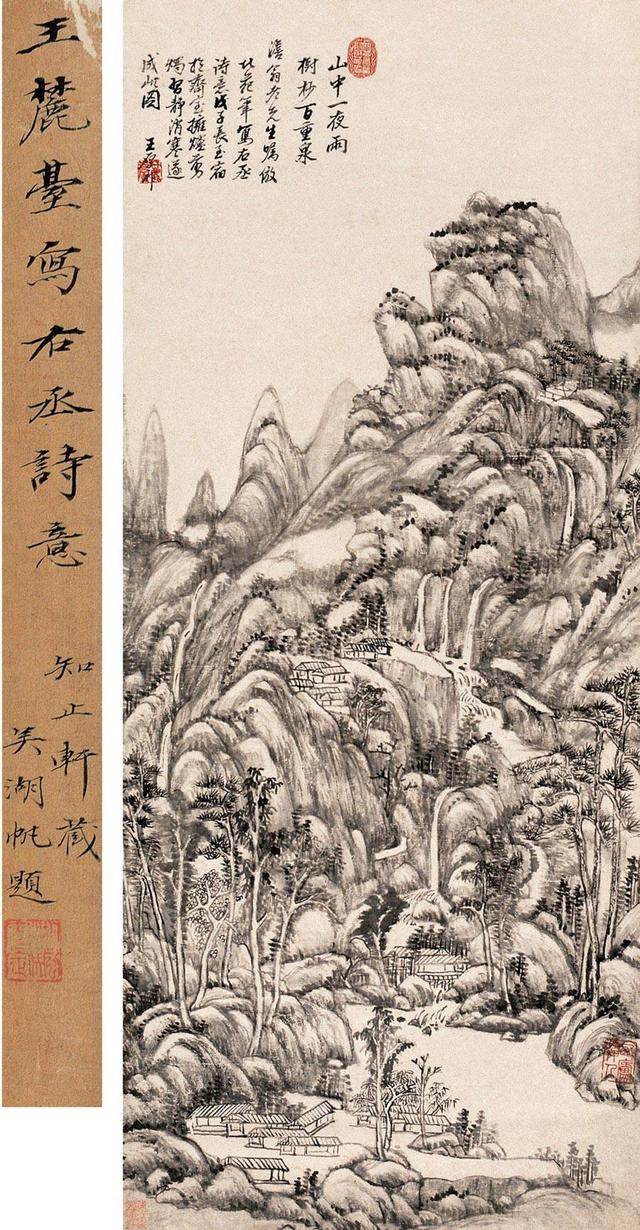 王麓臺寫右丞詩意
知止軒藏
吳湖帆題
山中一夜雨
樹杪百重泉
澹翁老先生囑倣
北苑筆寫右丞
詩意戊子長至宿
於齋宮擁爐剪
燭習靜消寒遂
成此圖 王原祁